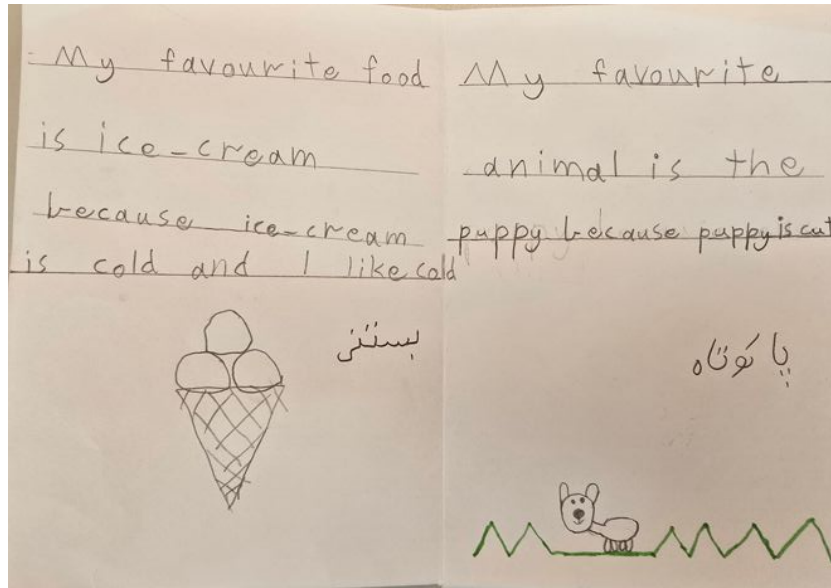 My favourite food
is ice-cream
because ice-cream
is cold and I like cold
بستنی
My favourite
animal is the
puppy because puppy is cut
پا کوتاه